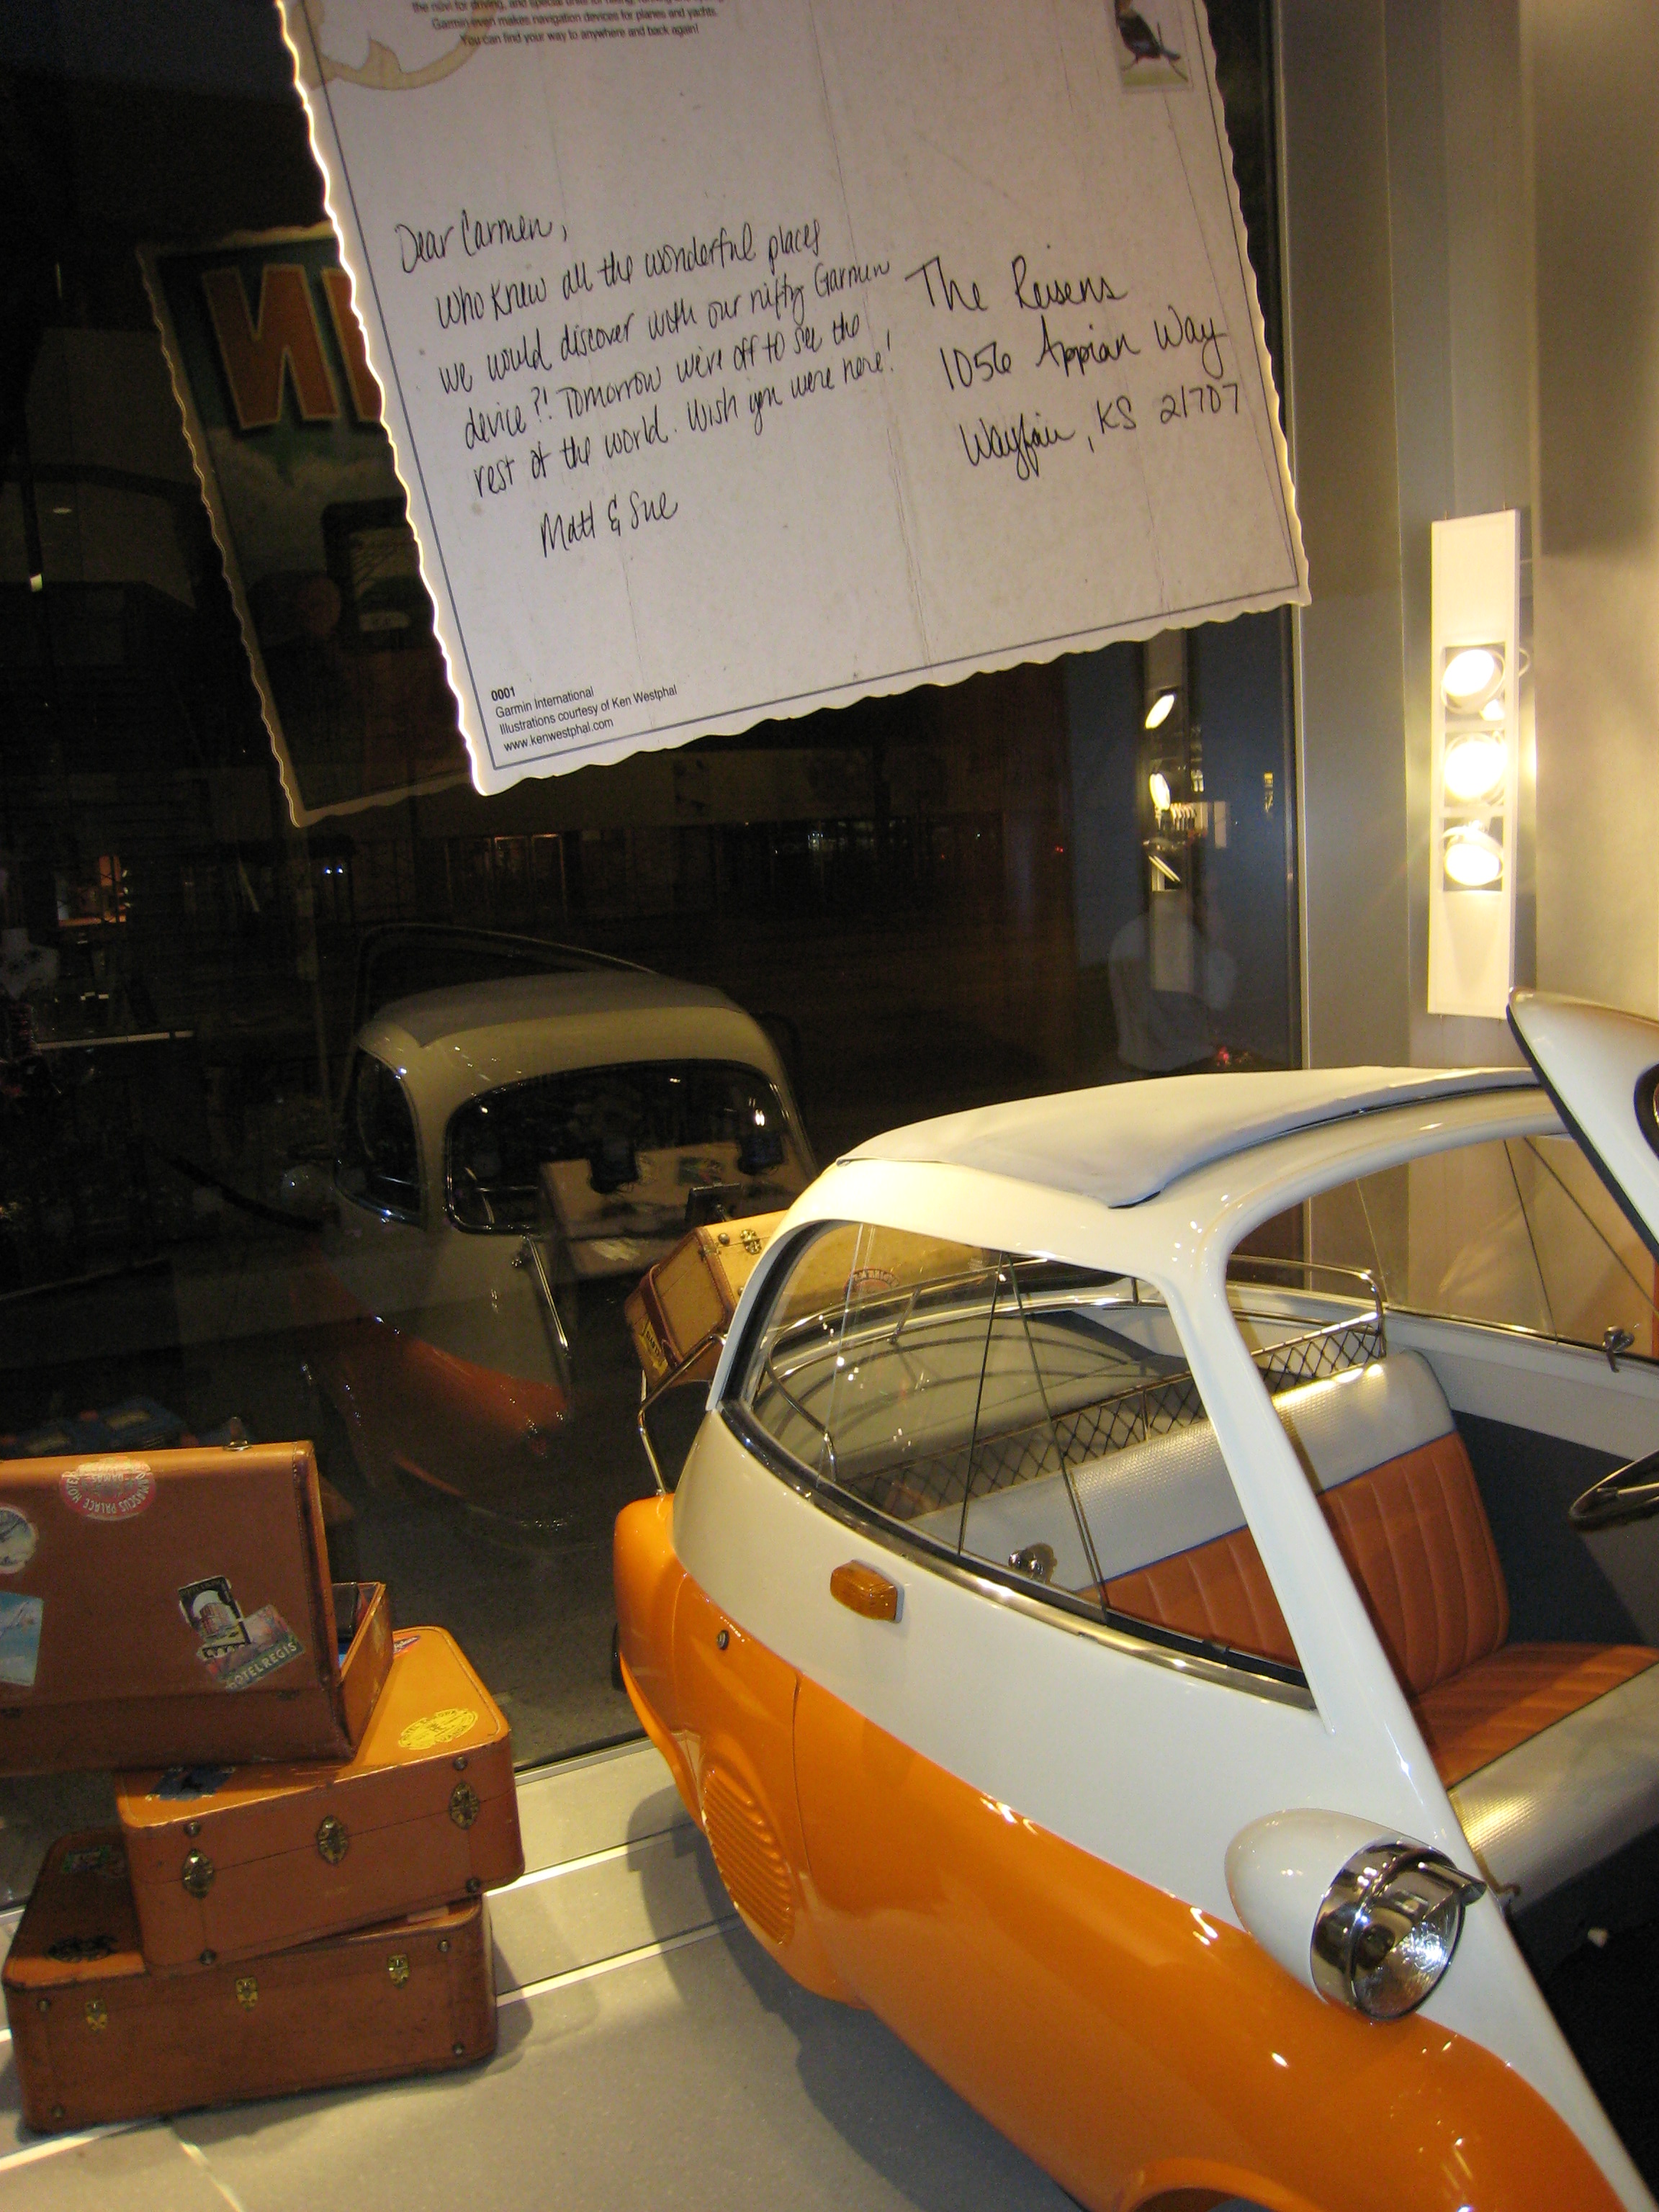 the nüvi for driving, and special units for
Garmin even makes navigation devices for planes and yachts.
You can find your way to anywhere and back again!
Dear Carmen,
Who knew all the wonderful places
we would discover with our nifty Garmin
device?! Tomorrow we're off to see the
rest of the world. Wish you were here!
Matt & Sue
The Reisens
1056 Appian Way
Wayfair, KS 21707
0001
Garmin International
Illustrations courtesy of Ken Westphal
www.kenwestphal.com
DAMASCUS PALACE HOTEL
HOTEL REGIS